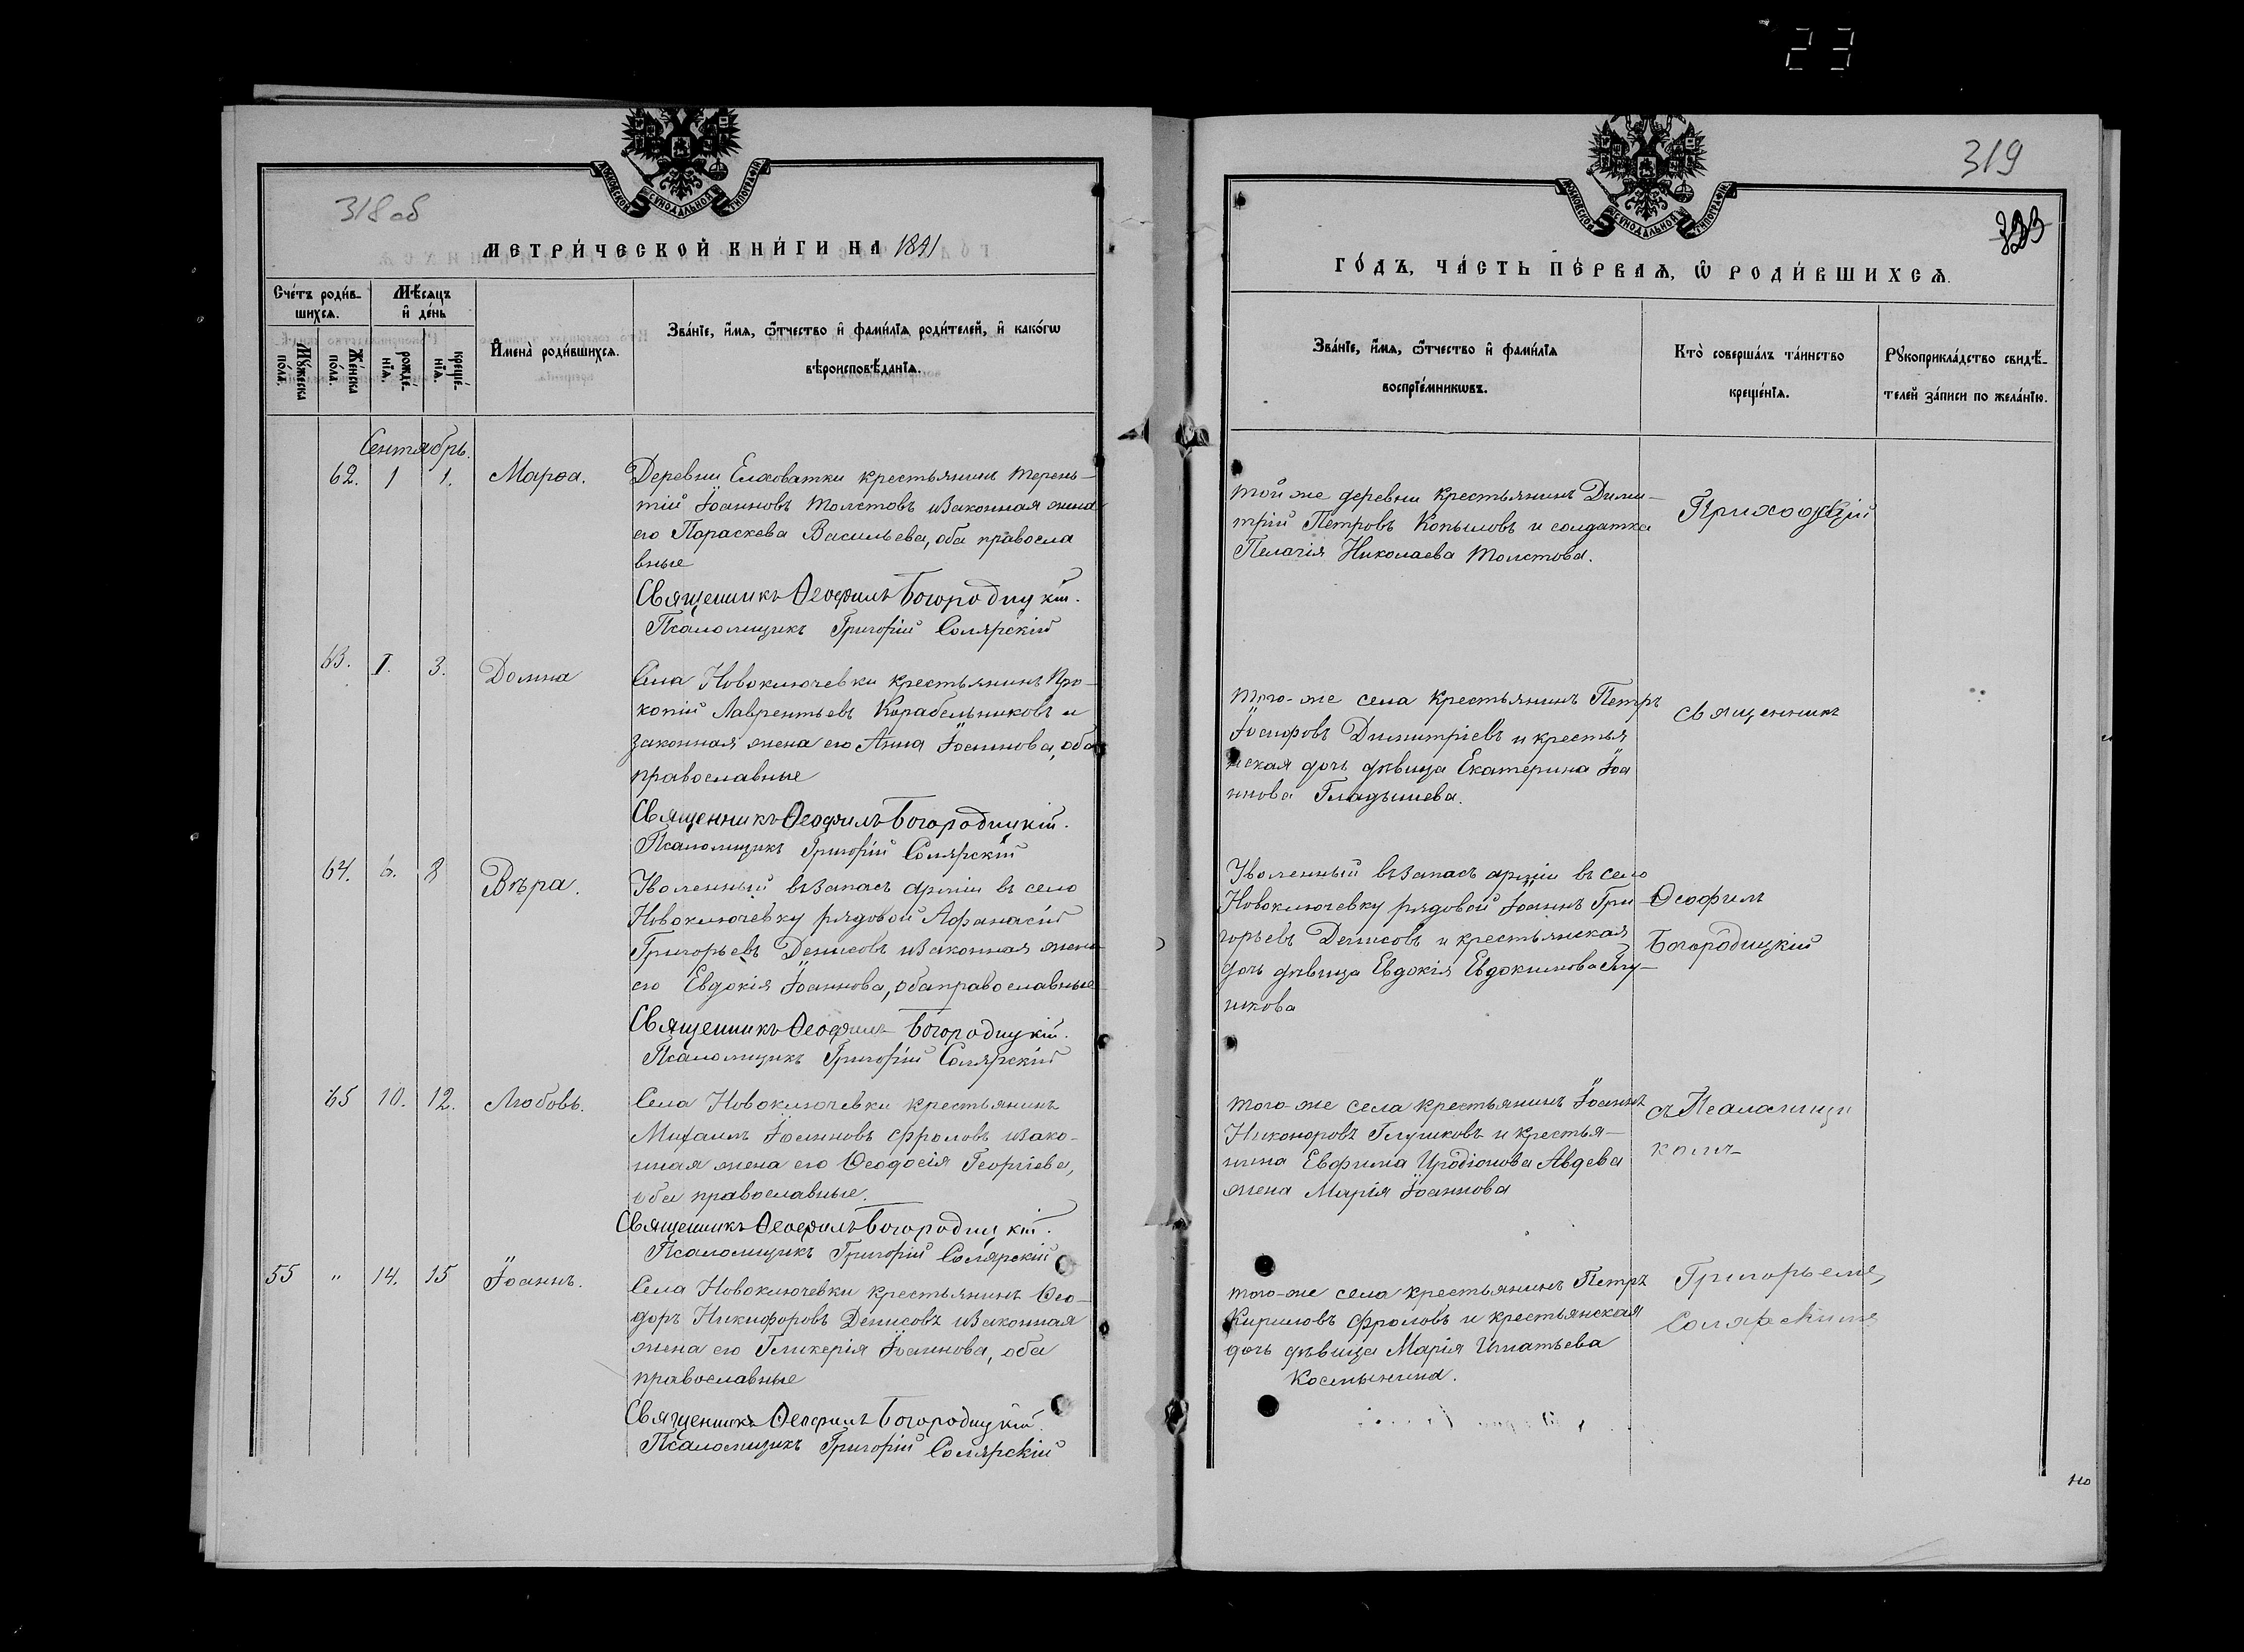 23
318 об
МЕТРИ́ЧЕСКОЙ КНИ́ГИ НА 1891
Сче́тъ роди́в-
шихсѧ.
Мѣ́сѧцъ
и҆ де́нь
Мꙋ́жеска
по́ла.
Же́нска
по́ла.
рожде́-
нїѧ.
креще́-
нїѧ.
И҆мена̀ роди́вшихсѧ.
Зва́нїе, и҆́мѧ, ѻ҆́тчество и҆ фами́лїѧ роди́телей, и҆ како́гѡ
вѣроисповѣ́данїѧ.
Сентябрь.
62. 1 1. Марѳа.
Деревни Елховатки крестьянинъ Терень-
тій Іоанновъ Толстовъ и законная жена
его Параскева Васильева, оба правосла
вные
Священникъ Ѳеофилъ Богородицкій.
Псаломщикъ Григорій Солярскій
63. 1. 3. Домна
Села Новоключевки крестьянинъ Про-
копій Лаврентьевъ Корабельниковъ и
законная жена его Анна Іоаннова, оба
православные
Священникъ Ѳеофилъ Богородицкій.
Псаломщикъ Григорій Солярскій
64. 6. 8 Вѣра.
Уволенный въ запасъ арміи въ село
Новоключевку рядовой Афанасій
Григорьевъ Денисовъ и законная жена
его Евдокія Іоаннова, оба православные
Священникъ Ѳеофилъ Богородицкій.
Псаломщикъ Григорій Солярскій
65 10. 12. Любовь.
Села Новоключевки крестьянинъ
Михаилъ Іоанновъ Фроловъ и зако-
нная жена его Ѳеодосія Георгіева,
оба православные.
Священникъ Ѳеофилъ Богородицкій.
Псаломщикъ Григорій Солярскій
55 " 14. 15 Іоаннъ.
Села Новоключевки крестьянинъ Ѳео-
доръ Никифоровъ Денисовъ и законная
жена его Гликерія Іоаннова, оба
православные
Священникъ Ѳеофилъ Богородицкій.
Псаломщикъ Григорій Солярскій
319
ГО́ДЪ, ЧА́СТЬ ПЕ́РВАѦ, Ѡ҆ РОДИ́ВШИХСѦ.
Зва́нїе, и҆́мѧ, ѻ҆́тчество и҆ фами́лїѧ
воспрїе́мникѡвъ.
Кто̀ соверша́лъ та́инство
креще́нїѧ.
Рꙋкоприкла́дство свидѣ́-
телей за́писи по жела́нїю.
Той же деревни крестьянинъ Дими-
трій Петровъ Копыловъ и солдатка
Пелагія Николаева Толстова.
Приходскій
Того-же села крестьянинъ Петръ
Іосифовъ Димитріевъ и крестья
нская дочь дѣвица Екатерина Іоа
ннова Гладышева.
священникъ
Уволенный въ запасъ арміи въ село
Новоключевку рядовой Іоаннъ Гри
горьевъ Денисовъ и крестьянская
дочь дѣвица Евдокія Евдокимова Глу-
шкова
Ѳеофилъ
Богородицкій
Того-же села крестьянинъ Іоаннъ
Никоноровъ Глушковъ и крестья-
нина Евфима Иродіонова Авдева
жена Марія Іоаннова
съ Псаломщи
комъ
Того-же села крестьянинъ Петръ
Кириловъ Фроловъ и крестьянская
дочь дѣвица Марія Игнатьева
Костынина.
Григорьемъ
Солярскимъ